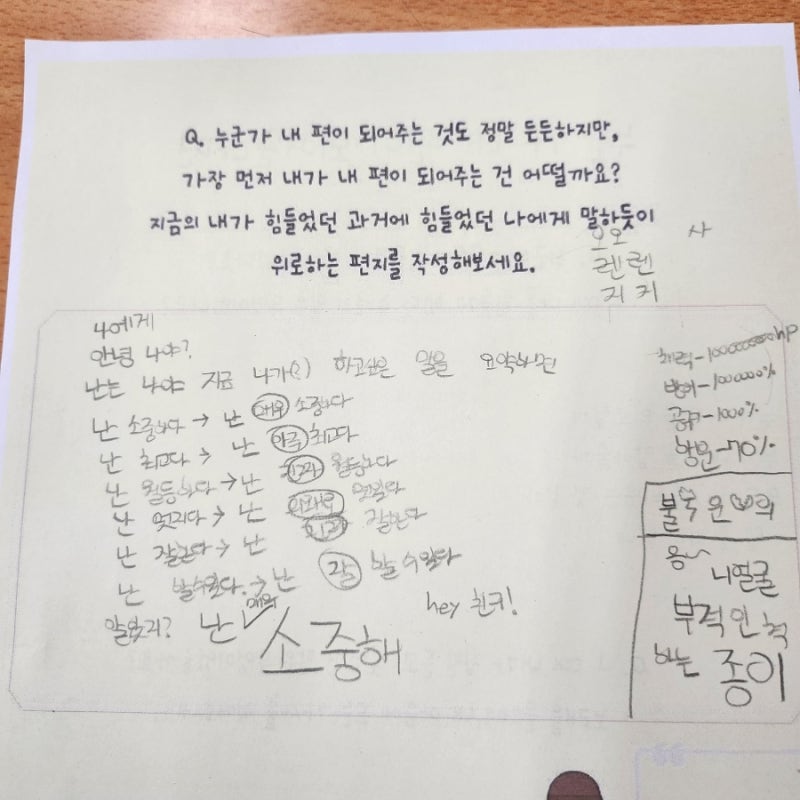 Q. 누군가 내 편이 되어주는 것도 정말 든든하지만,
가장 먼저 내가 내 편이 되어주는 건 어떨까요?
지금의 내가 힘들었던 과거에 힘들었던 나에게 말하듯이
위로하는 편지를 작성해보세요.
오오 사
렌렌
지 지
나에게
안녕 나야?
난는 나야 지금 내가(?) 하고싶은 말을 요약하면
난 소중하다 → 난 매우 소중하다
난 최고다 → 난 아주 최고다
난 월등하다 → 난 월등하다
난 멋지다 → 난 멋지다
난 잘한다 → 난 잘한다
난 할수있다. → 난 잘 할 수 있다
알았지? 난 매우 소중해
hey 친구!
체력-1000000000hp
방어-100000%
공격-1000%
행운-70%
불
응~ 니얼굴
부적인 척
하는 종이